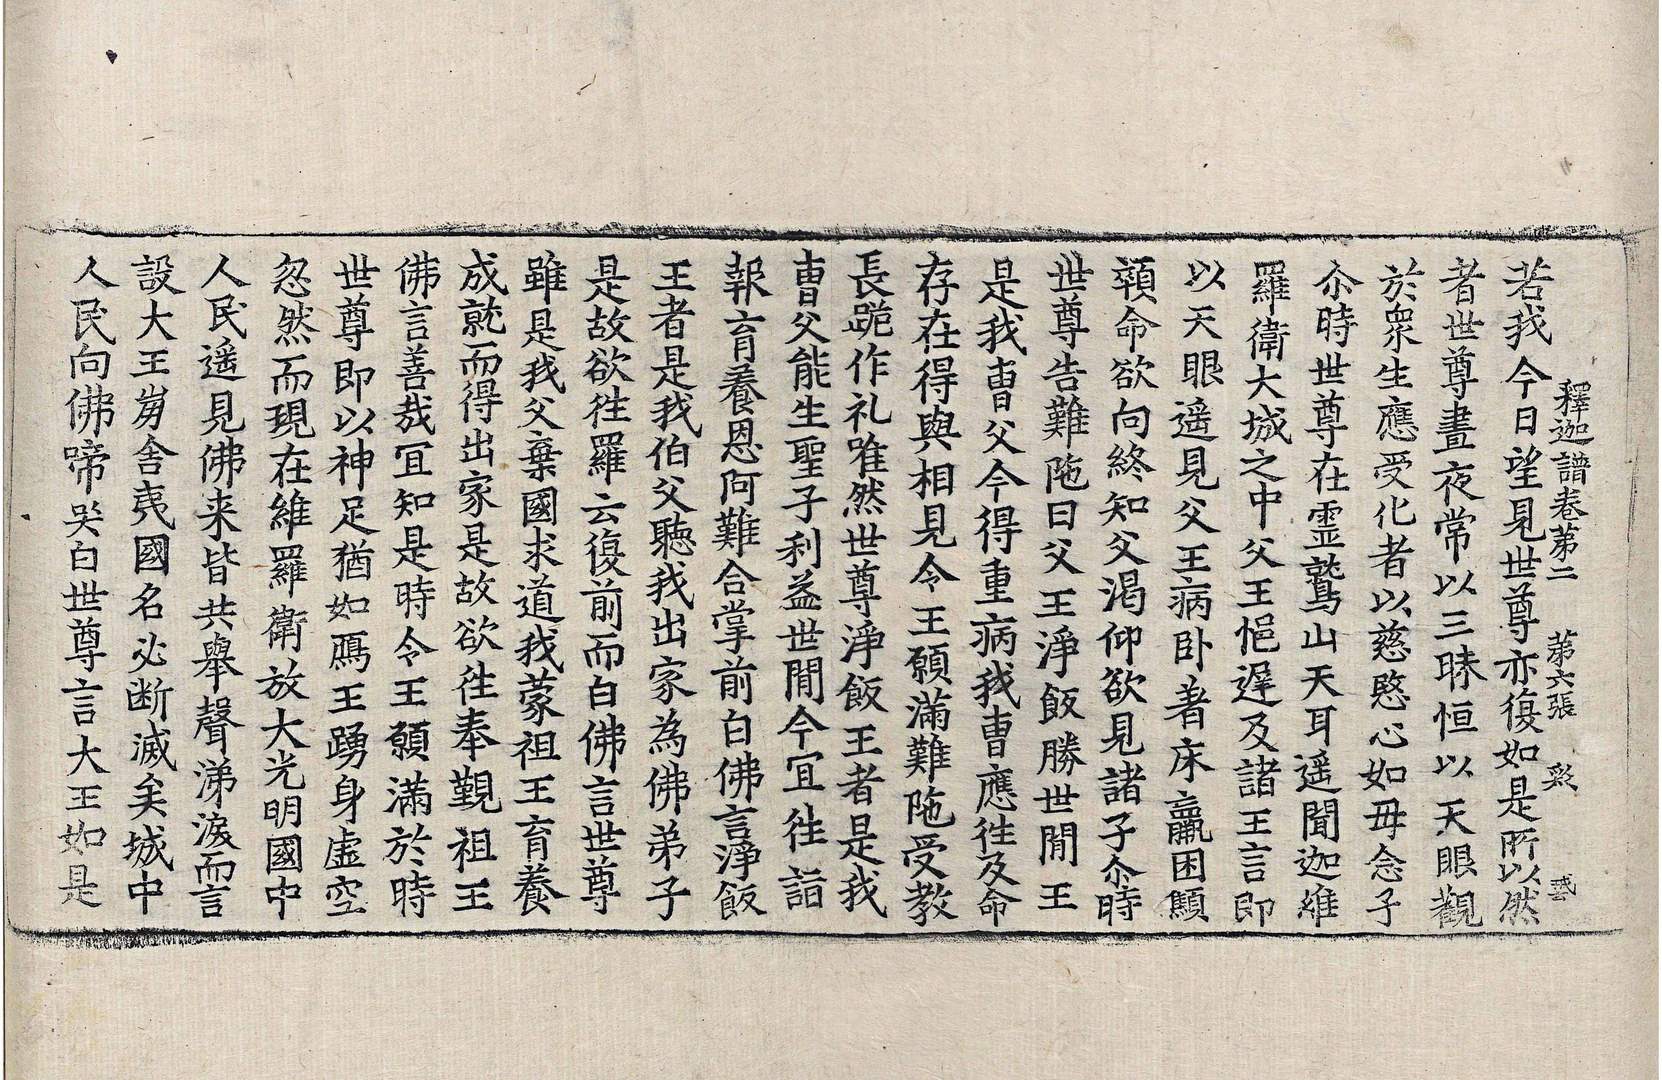 釋迦譜卷第二 第六張 彩
若我今日望見世尊亦復如是所以然
者世尊晝夜常以三昧恒以天眼觀
於衆生應受化者以慈愍心如母念子
尒時世尊在靈鷲山天耳遥聞迦維
羅衛大城之中父王悒遲及諸王言即
以天眼遥見父王病卧著床羸困顯
顇命欲向終知父渴仰欲見諸子尒時
世尊告難陁曰父王淨飯勝世間王
是我曺父今得重病我曺應徃及命
存在得與相見令王願滿難陁受教
長跪作礼唯然世尊淨飯王者是我
曺父能生聖子利益世間今冝徃詣
報育養恩阿難合掌前白佛言淨飯
王者是我伯父聽我出家為佛弟子
是故欲徃羅云復前而白佛言世尊
雖是我父棄國求道我蒙祖王育養
成就而得出家是故欲徃奉覲祖王
佛言善哉冝知是時令王願滿於時
世尊即以神足猶如鴈王踴身虛空
忽然而現在維羅衛放大光明國中
人民遥見佛来皆共舉聲涕淚而言
設大王崩舍夷國名必断滅矣城中
人民向佛啼哭白世尊言大王如是